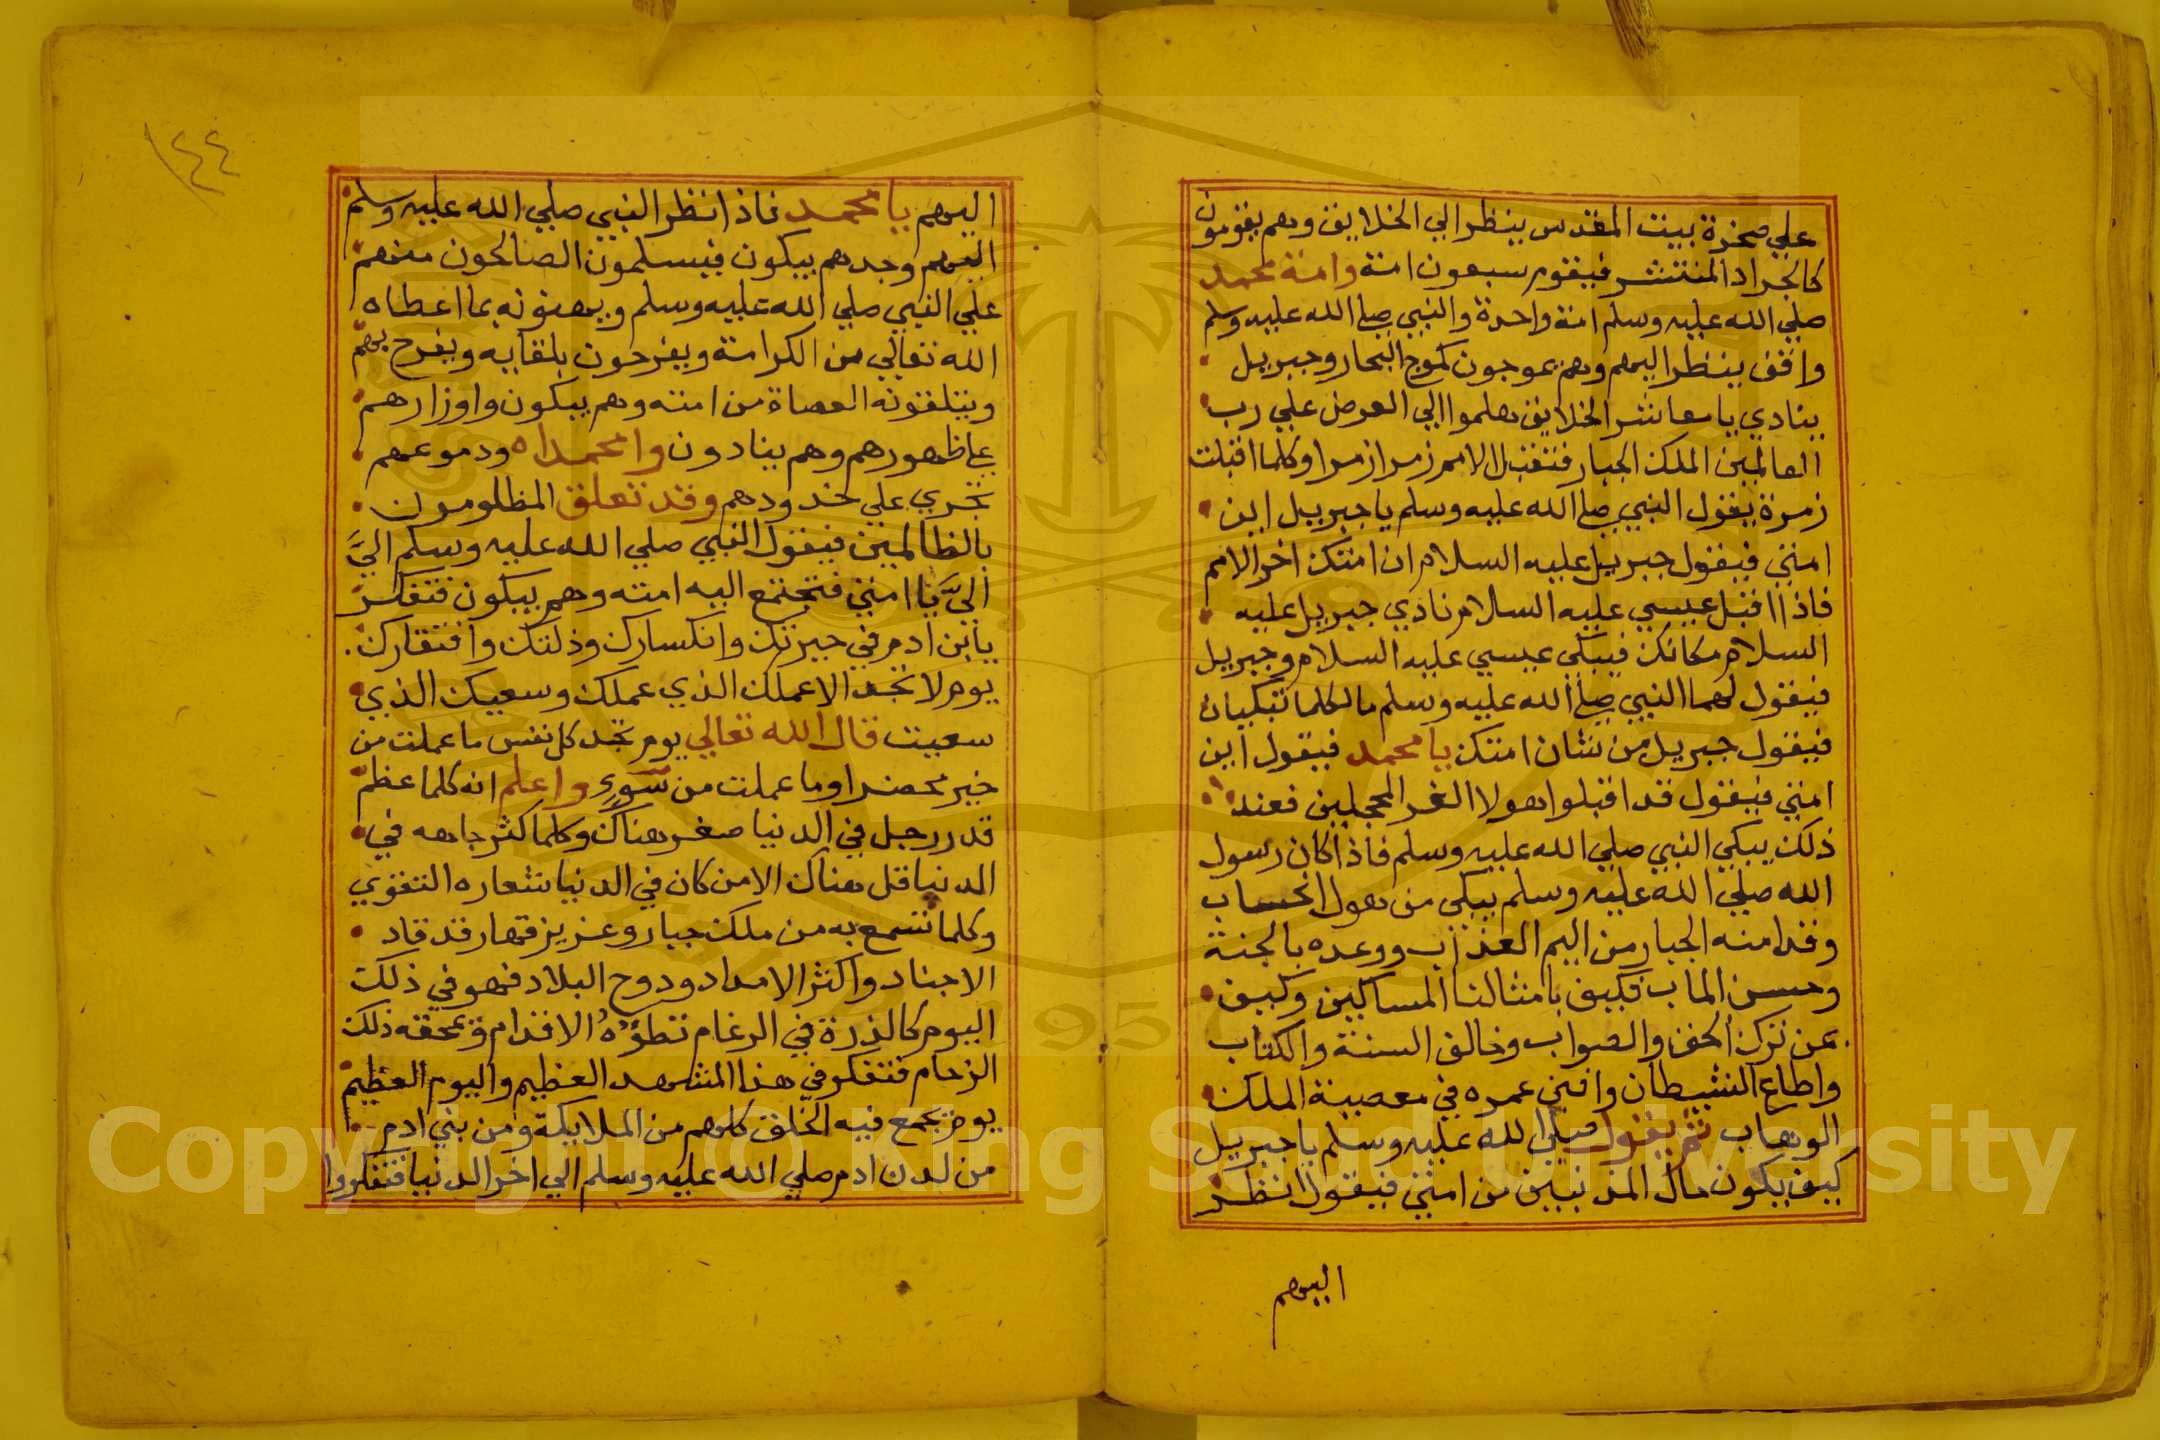 علي صخرة بيت المقدس ينظر الي الخلايق وهم يقومون
كالجراد المنتشر فيقوم سبعون امة وامة محمد
صلي الله عليه وسلم امة واحدة والنبي صلي الله عليه وسلم
واقف ينظر اليهم وهم يموجون كموج البحار وجبريل
ينادي يا معاشر الخلايق هلموا الي العرض علي رب
العالمين الملك الجبار فتقبل الامم زمرا زمرا وكلما اقبلت
زمرة يقول النبي صلي الله عليه وسلم يا جبريل اين
امتي فيقول جبريل عليه السلام ان امتك اخر الامم
فاذا اقبل عيسي عليه السلام نادي جبريل عليه
السلام مكانك فيبكي عيسي عليه السلام وجبريل
فيقول لهما النبي صلي الله عليه وسلم مالكلما تبكيان
فيقول جبريل من شان امتك يا محمد فيقول اين
امتي فيقول قد اقبلوا هولا الغر المحجلين فعند
ذلك يبكي النبي صلي الله عليه وسلم فاذا كان رسول
الله صلي الله عليه وسلم يبكي من هول الحساب
وقد امنه الجبار من اليم العذاب ووعده بالجنة
وحسن الماب فكيف بامثالنا المساكين وكيف
بمن ترك الحق والصواب وخالف السنة والكتاب
واطاع الشيطان وافني عمره في معصية الملك
الوهاب ثم يقول صلي الله عليه وسلم يا جبريل
كيف يكون حال المذنبين من امتي فيقول انظر
اليهم
١٤٤
اليهم يا محمد فاذا نظر النبي صلي الله عليه وسلم
اليهم وجدهم يبكون فيسلمون الصالحون منهم
علي النبي صلي الله عليه وسلم ويهنونه بما اعطاه
الله تعالي من الكرامة ويفرحون بلقايه ويفرح بهم
ويتلقونه العصاة من امته وهم يبكون واوزارهم
علي ظهورهم وهم ينادون وامحمداه ودموعهم
تجري علي خدودهم وقد تعلق المظلومون
بالظالمين فيقول النبي صلي الله عليه وسلم اليَّ
اليَّ يا امتي فتجتمع اليه امته وهم يبكون فتفكر
يا بن ادم في حيرتك وانكسارك وذلتك وافتقارك
يوم لا تجد الا عملك الذي عملك وسعيك الذي
سعيت قال الله تعالي يوم تجد كل نفس ما عملت من
خير محضرا وما عملت من سوء واعلم انه كلما عظم
قدر رجل في الدنيا صغر هناك وكلما كثر جاهه في
الدنيا قل هناك الا من كان في الدنيا شعاره التقوي
وكلما تسمع به من ملك جبار وعزيز قهار قد قاد
الاجناد واكثر الامداد ودوح البلاد فهو في ذلك
اليوم كالذرة في الرغام تطؤه الاقدام وتمحقه ذلك
الزحام فتفكر في هذا المشهد العظيم واليوم العظيم
يوم تجمع فيه الخلق كلهم من الملايكة ومن بني ادم
من لدن ادم صلي الله عليه وسلم الي اخر الدنيا فتفكروا
Copyright © King Saud University
1957